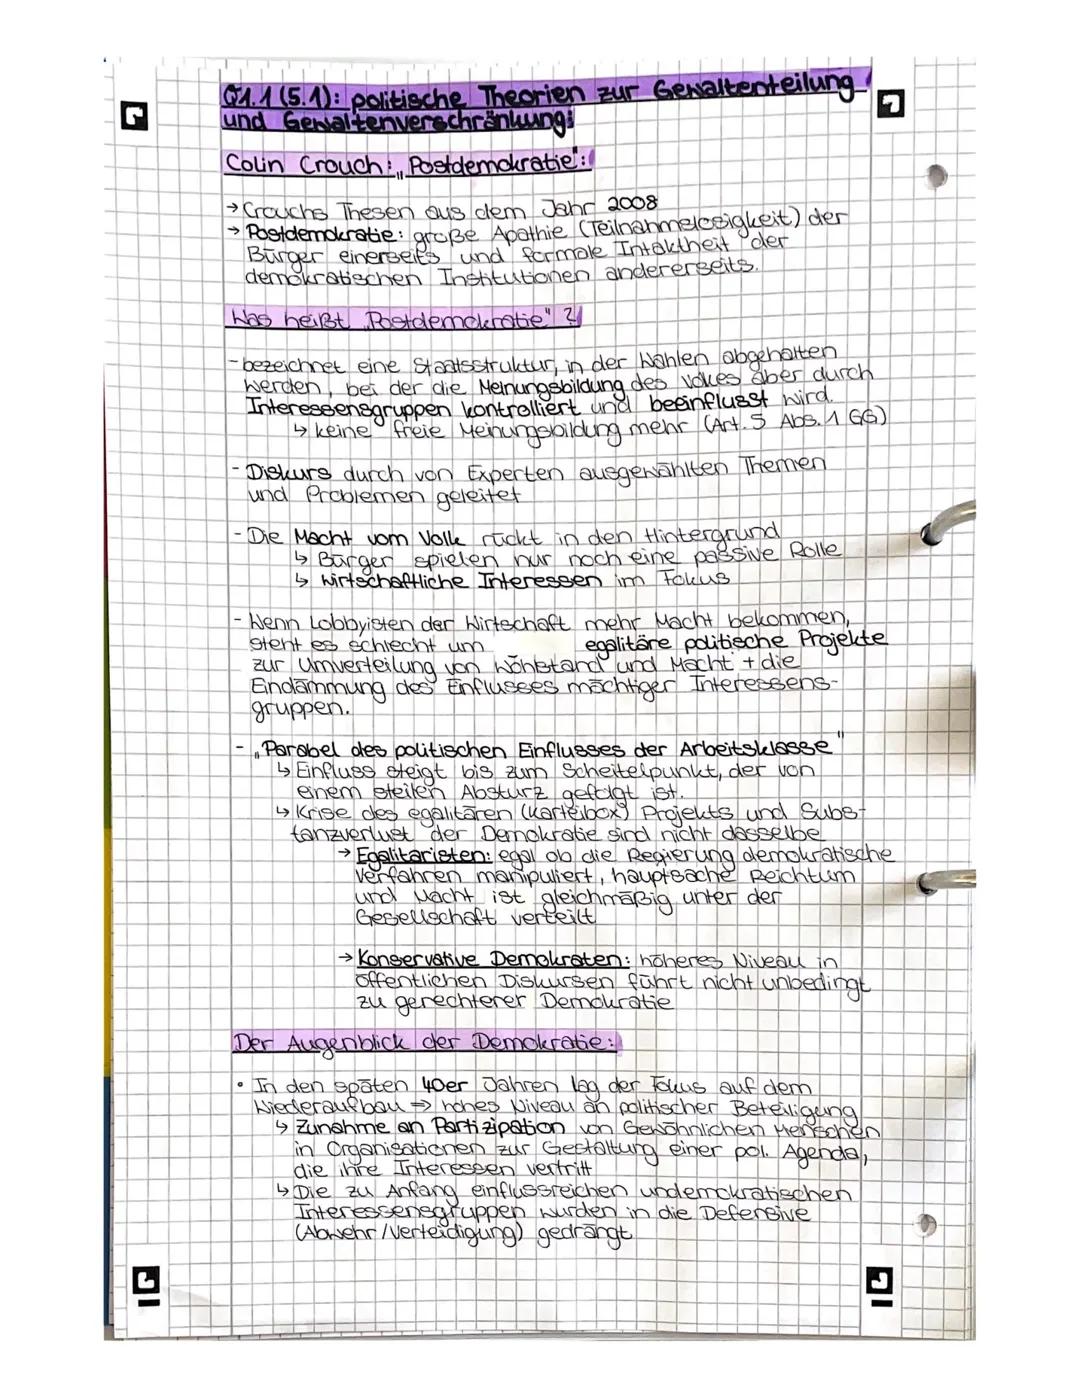 Q1.1 (5.1): politische Theorien zur Gewaltenteilung
und Gewaltenverschränkung:
Colin Crouch: „Postdemokratie":
→ Crouchs Thesen aus dem Jahr 2008
→ Postdemokratie: große Apathie (Teilnahmelosigkeit) der
Bürger einerseits und formale Intaktheit der
demokratischen Institutionen andererseits.
Was heißt „Postdemokratie" ?
- bezeichnet eine Staatsstruktur, in der Wahlen abgehalten
werden, bei der die Meinungsbildung des Volkes aber durch
Interessensgruppen kontrolliert und beeinflusst wird.
↳ keine freie Meinungsbildung mehr (Art. 5 Abs. 1 GG)
- Diskurs durch von Experten ausgewählten Themen
und Problemen geleitet
- Die Macht vom Volk rückt in den Hintergrund
↳ Bürger spielen nur noch eine passive Rolle
↳ wirtschaftliche Interessen im Fokus
- Wenn Lobbyisten der Wirtschaft mehr Macht bekommen,
steht es schlecht um egalitäre politische Projekte
zur Umverteilung von Wohlstand und Macht + die
Eindämmung des Einflusses mächtiger Interessens-
gruppen.
- „Parabel des politischen Einflusses der Arbeitsklasse"
↳ Einfluss steigt bis zum Scheitelpunkt, der von
einem steilen Absturz gefolgt ist.
↳ Krise des egalitären (Karteibox) Projekts und Subs-
tanzverlust der Demokratie sind nicht dasselbe
→ Egalitaristen: egal ob die Regierung demokratische
Verfahren manipuliert, hauptsache Reichtum
und Macht ist gleichmäßig unter der
Gesellschaft verteilt
→ Konservative Demokraten: höheres Niveau in
öffentlichen Diskursen führt nicht unbedingt
zu gerechterer Demokratie
Der Augenblick der Demokratie:
• In den späten 40er Jahren lag der Fokus auf dem
Wiederaufbau ⇒ hohes Niveau an politischer Beteiligung
↳ Zunahme an Partizipation von Gewöhnlichen Menschen
in Organisationen zur Gestaltung einer pol. Agenda,
die ihre Interessen vertritt
↳ Die zu Anfang einflussreichen undemokratischen
Interessensgruppen wurden in die Defensive
(Abwehr/Verteidigung) gedrängt